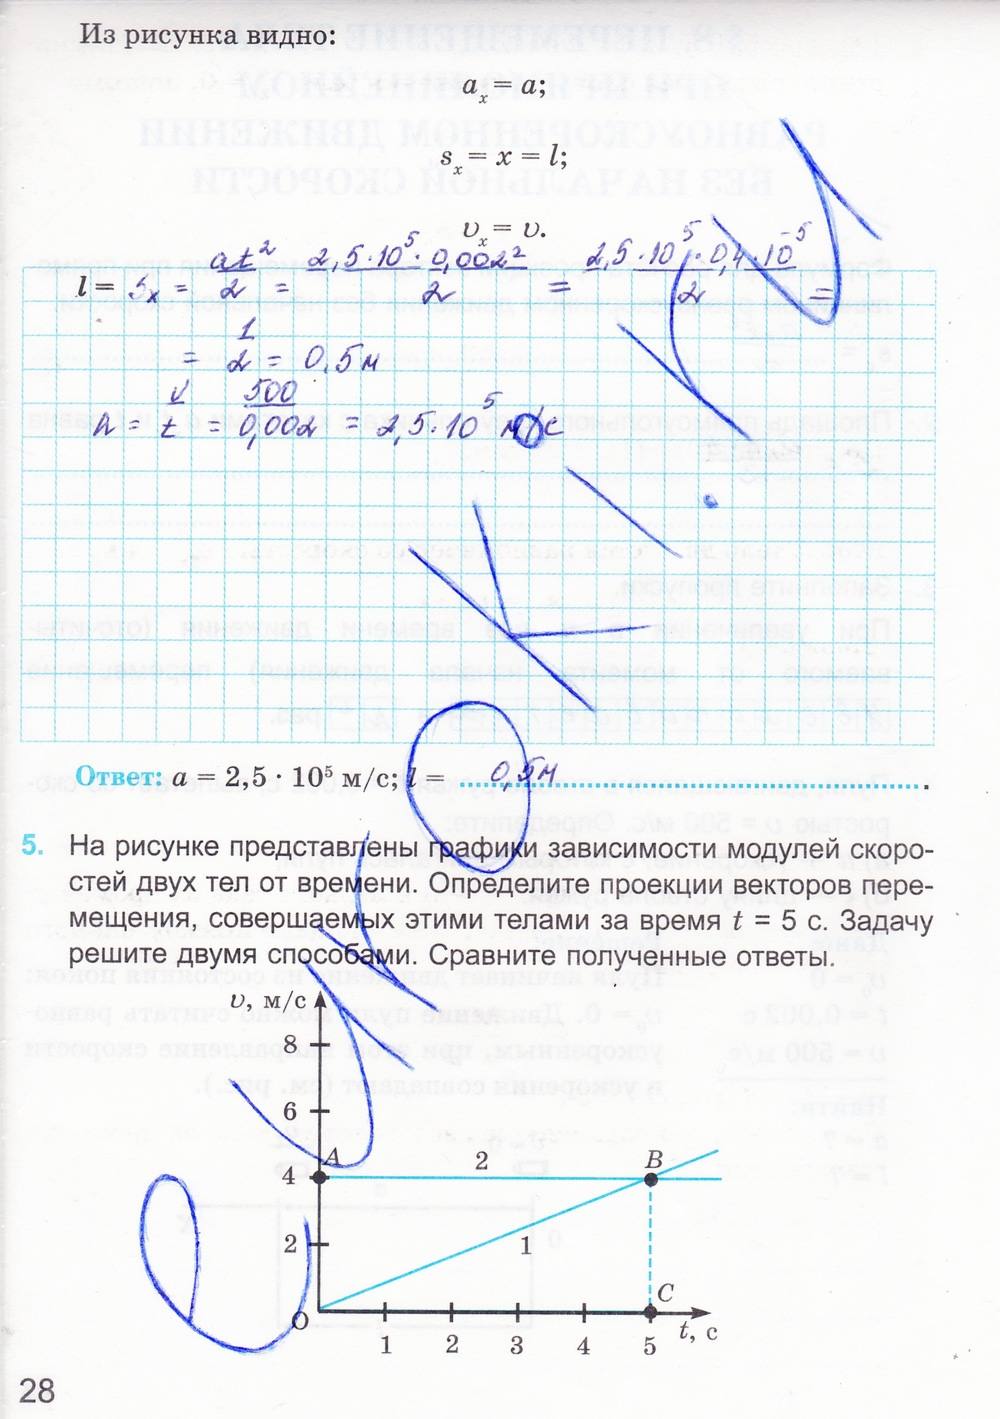 Из рисунка видно:
aₓ = a;
sₓ = x = l;
υₓ = υ.
l = Sₓ = at²/2 = 2,5·10⁵·0,002²/2 = 2,5·10⁵·0,4·10⁻⁵/2 =
= 1/2 = 0,5 м
a = v/t = 500/0,002 = 2,5·10⁵ м/с
Ответ: a = 2,5 · 10⁵ м/с; l = 0,5 м.
5. На рисунке представлены графики зависимости модулей скоро-
стей двух тел от времени. Определите проекции векторов пере-
мещения, совершаемых этими телами за время t = 5 с. Задачу
решите двумя способами. Сравните полученные ответы.
υ, м/с
8
6
A 2 B
4
2
1
C
O
1 2 3 4 5 t, с
28